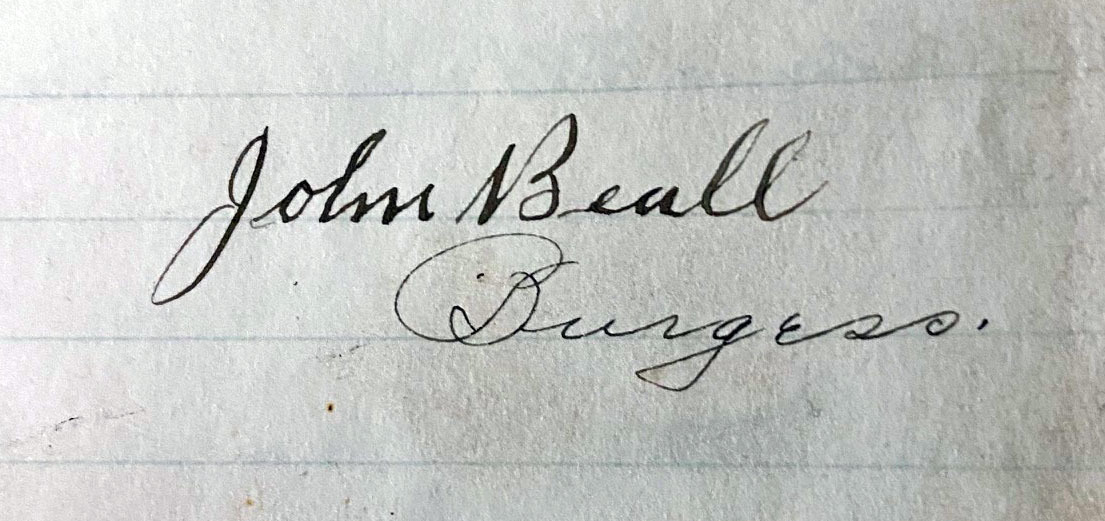 John Beall
Burgess.